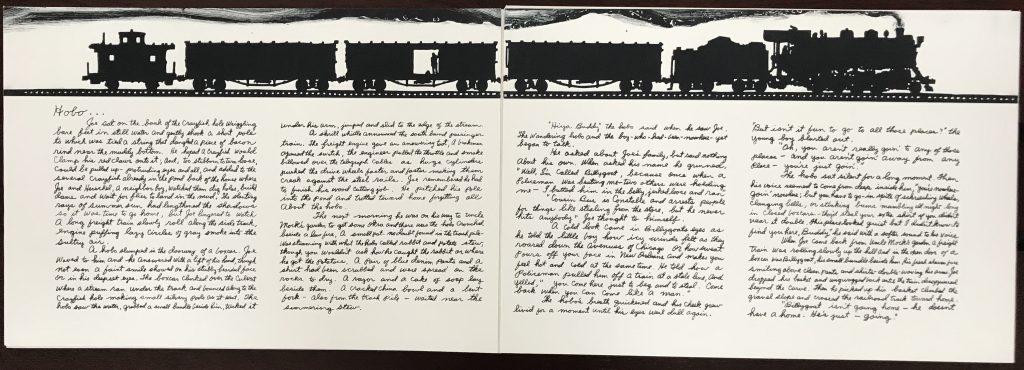 Hobo...
Joe sat on the bank of the Crayfish hole wriggling
bare feet in still water and gently shook a short pole
to which was tied a string that dangled a piece of bacon
rind near the muddy bottom. He hoped a Crayfish would
Clamp his red claws onto it, and, too stubborn to turn loose,
Could be pulled up - protruding eyes and all, and added to the
several Crayfish already in the pond back of the house where
Joe and Herschel, a neighbor boy, watched them dig holes, build
dams and wait for flies to land in the mud. The slanting
rays of summer sun had lengthened the shadows
so it was time to go home, but Joe lingered to watch
A long freight train slowly roll along the side track,
engine puffing lazy circles of gray smoke into the
sultry air.
A hobo slumped in the doorway of a boxcar. Joe
Waved to him and he answered with a lift of his hand, though
not even a faint smile showed on his stubby bearded face
or in his deepset eyes. The boxcar clanked over the Culvert
where a stream ran under the track and bounced along to the
Crayfish hole making small silvery pools as it went. The
hobo saw the water, grabbed a small bundle beside him, tucked it
under his arm, jumped and slid to the edge of the stream.
A shrill whistle announced the south bound passenger
train. The freight engine gave an answering toot, A brakeman
opened the switch, the engineer pulled the throttle and smoke
billowed over the telegraph cables as huge cylinders
pushed the drive wheels faster and faster making them
creak against the steel rails. Joe remembered he had
to finish his wood cutting job. He pitched his pole
into the pond and trotted toward home forgetting all
About the hobo.
The next morning he was on his way to Uncle
Mork's garden to get some okra and there was the hobo crouched
beside a low fire. A small pot - no doubt found in the trash pile -
was steaming with what the hobo called rabbit and potato stew,
though you wouldn't ask how he caught the rabbit or where
he got the potatoes. A pair of blue denim pants and a
shirt had been scrubbed and were spread on the
rocks to dry. A razor and a cake of soap lay
beside them. A cracked china bowl and a bent
fork - also from the trash pile - waited near the
simmering stew.
"Hiya Buddy," the hobo said when he saw Joe.
The wandering hobo and the boy-who-had-been-nowhere-yet
began to talk.
He asked about Joe's family, but said nothing
About his own. When asked his name he grinned,
"Well, I'm Called Billygoat, because once when a
Policeman was beating me - two others were holding
me - I butted him in the belly, jerked loose and ran."
"Cousin Beer is Constable and arrests people
for things like stealing from the store, but he never
hits anybody" Joe thought to himself.
A cold look came in Billygoat's eyes as
he told the little boy how icy winds felt as they
roared down the Avenues of Chicago Or how sweat
Pours off your face in New Orleans and makes you
feel hot and cold at the same time. He told how a
Policeman pulled him off a train at a state line And
yelled, "you come here just to beg and to steal. Come
back when you can Come like a man."
The hobo's breath quickened and his cheek grew
livid for a moment until his eyes went dull again.
"But isn't it fun to go to all those places?" the
young boy blandly asked.
"Ah, you aren't really goin' to any of those
places - and you aren't goin' away from any
place - you're just goin'."
The hobo sat silent for a long moment. Then,
his voice seemed to come from deep inside him, "you're nowhere-
goin' nowhere; but you have to go - in spite of screeching wheels,
clanging bells, or clinking beans
in closed boxcars - they'd steal your extra shirt if you didn't
wear it double. This place looked quiet but I didn't know to
find you here, Buddy," he said with a softer sound to his voice.
When Joe came back from Uncle Mork's garden, a freight
train was rolling slowly up the hill and in the open door of a
boxcar was Billygoat, his small bundle beside him, his face shaven, face
smiling above clean pants and shirt - double - waving his arm. Joe
dropped his basket and
beyond the curve. Then he picked up his basket, climbed the
gravel slope and crossed the railroad track toward home.
"Billygoat isn't going home - he doesn't
have a home. He's just - going."